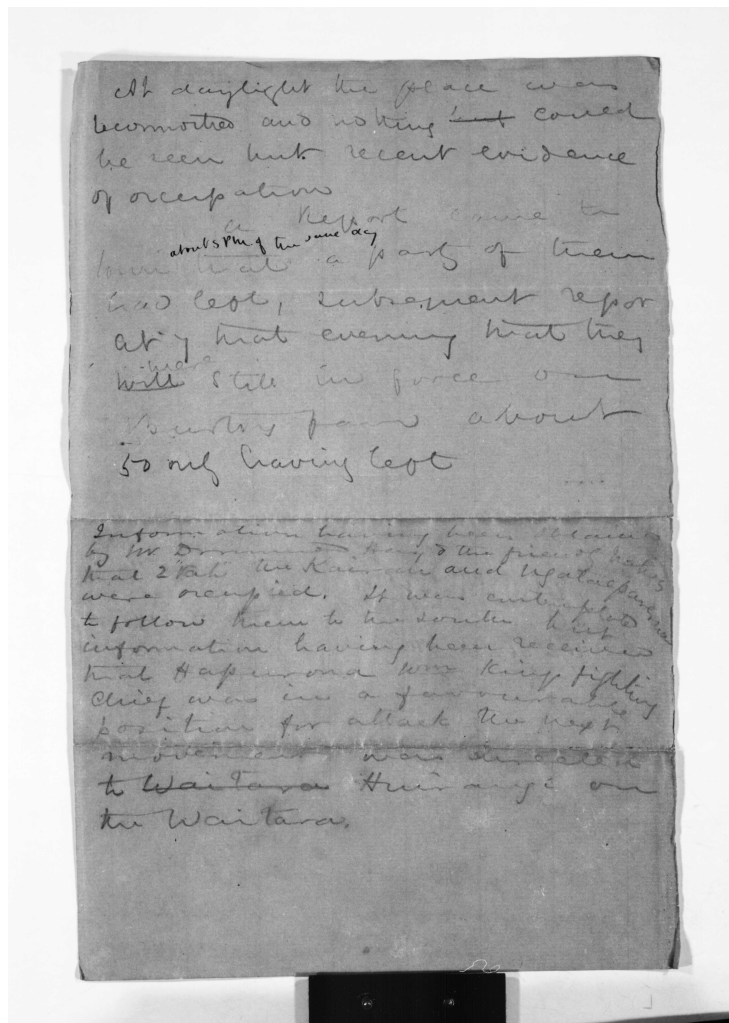 At daylight the place was
reconnoitred and nothing but could
be seen but recent evidence
of occupation
a Report came in
about 5 PM of the same day
that a party of them
had left, subsequent repor
at 7 that evening that they
will were still in force on
farm about
50 only having left
Information having been obtained
by Mr Drummond Hay & the friendly natives
that 2 "Pah" the Kairau and
were occupied. It was contemplated
to follow them to the south but
information having been received
that Hapurona Wm Kings fighting
Chief was in a favourable
position for attack the next
movement was directed
to Waitara Huirangi on
the Waitara.